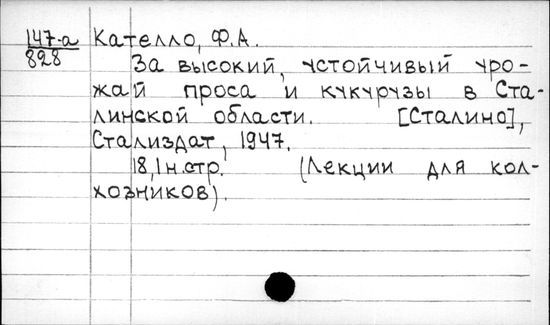 147-а Кателло, Ф.А.
828
За высокий, устойчивый уро-
жай проса и кукурузы в Ста-
линской области. [Сталино],
Стализдат, 1947.
18,1н.стр. (Лекции для кол-
хозников).